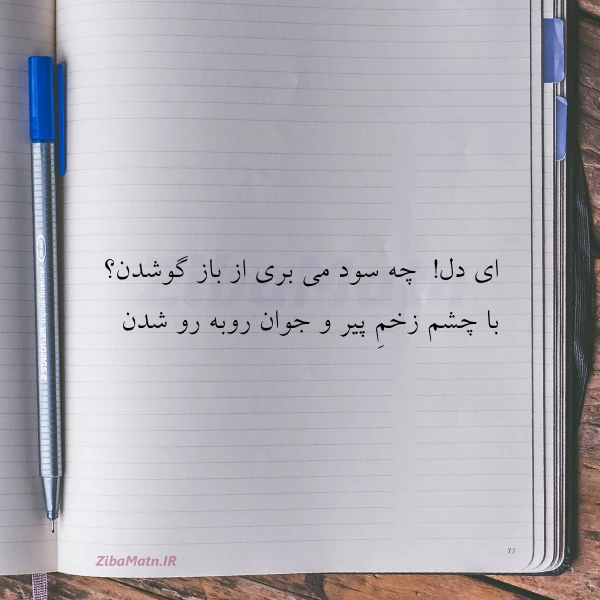 ای دل! چه سود می بری از باز گوشدن؟
با چشم زخمِ پیر و جوان روبه رو شدن
77
ZibaMatn.IR